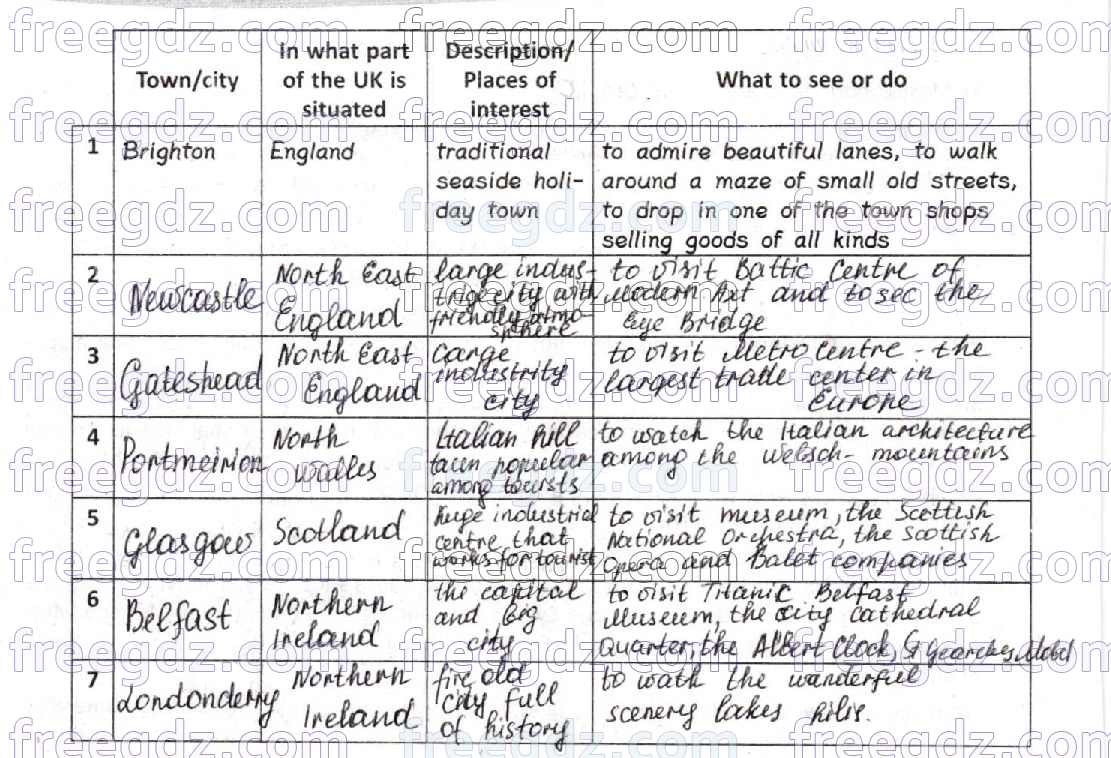 Town/city
In what part
of the UK is
situated
Description/
Places of
interest
What to see or do
1
Brighton
England
traditional
seaside holi-
day town
to admire beautiful lanes, to walk
around a maze of small old streets,
to drop in one of the town shops
selling goods of all kinds
2
Newcastle
North East
England
large indus-
city with
friendly atmo-
sphere
to visit Baltic Centre of
Modern Art and to see the
Eye Bridge
3
Gateshead
North East
England
large
industrity
city
to visit Metro Centre - the
largest trade center in
Europe
4
Portmeirion
North
Walles
Italian hill
popular
among tourists
to watch the Italian architecture
among the Welsch- mountains
5
Glasgow
Scotland
huge industrial
centre that
works for tourist
to visit museum, the Scottish
National Orchestra, the Scottish
Opera and Balet companies
6
Belfast
Northern
Ireland
the capital
and big
city
to visit Titanic Belfast
Museum, the city cathedral
Quarter, the Albert Clock,
7
Londonderry
Northern
Ireland
old
city full
of history
to wath the wanderful
scenery lakes hills.
freegdz.com